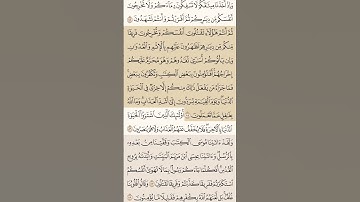 وَإِذْ أَخَذْنَا مِيثَٰقَكُمْ لَا تَسْفِكُونَ دِمَآءَكُمْ وَلَا تُخْرِجُونَ
أَنفُسَكُم مِّن دِيَٰرِكُمْ ثُمَّ أَقْرَرْتُمْ وَأَنتُمْ تَشْهَدُونَ ٨٤
ثُمَّ أَنتُمْ هَٰٓؤُلَآءِ تَقْتُلُونَ أَنفُسَكُمْ وَتُخْرِجُونَ فَرِيقًا
مِّنكُم مِّن دِيَٰرِهِمْ تَظَٰهَرُونَ عَلَيْهِم بِٱلْإِثْمِ وَٱلْعُدْوَٰنِ
وَإِن يَأْتُوكُمْ أُسَٰرَىٰ تُفَٰدُوهُمْ وَهُوَ مُحَرَّمٌ عَلَيْكُمْ
إِخْرَاجُهُمْ أَفَتُؤْمِنُونَ بِبَعْضِ ٱلْكِتَٰبِ وَتَكْفُرُونَ بِبَعْضٍ
فَمَا جَزَآءُ مَن يَفْعَلُ ذَٰلِكَ مِنكُمْ إِلَّا خِزْىٌ فِى ٱلْحَيَوٰةِ
ٱلدُّنْيَا وَيَوْمَ ٱلْقِيَٰمَةِ يُرَدُّونَ إِلَىٰٓ أَشَدِّ ٱلْعَذَابِ وَمَا ٱللَّهُ
بِغَٰفِلٍ عَمَّا تَعْمَلُونَ ٨٥ أُو۟لَٰٓئِكَ ٱلَّذِينَ ٱشْتَرَوُا۟ ٱلْحَيَوٰةَ
ٱلدُّنْيَا بِٱلْءَاخِرَةِ فَلَا يُخَفَّفُ عَنْهُمُ ٱلْعَذَابُ وَلَا هُمْ يُنصَرُونَ ٨٦
وَلَقَدْ ءَاتَيْنَا مُوسَى ٱلْكِتَٰبَ وَقَفَّيْنَا مِنۢ بَعْدِهِۦ
بِٱلرُّسُلِ وَءَاتَيْنَا عِيسَى ٱبْنَ مَرْيَمَ ٱلْبَيِّنَٰتِ وَأَيَّدْنَٰهُ بِرُوحِ
ٱلْقُدُسِ أَفَكُلَّمَا جَآءَكُمْ رَسُولٌۢ بِمَا لَا تَهْوَىٰٓ أَنفُسُكُمُ
ٱسْتَكْبَرْتُمْ فَفَرِيقًا كَذَّبْتُمْ وَفَرِيقًا تَقْتُلُونَ ٨٧ وَقَالُوا۟ قُلُوبُنَا
غُلْفٌۢ بَل لَّعَنَهُمُ ٱللَّهُ بِكُفْرِهِمْ فَقَلِيلًا مَّا يُؤْمِنُونَ ٨٨